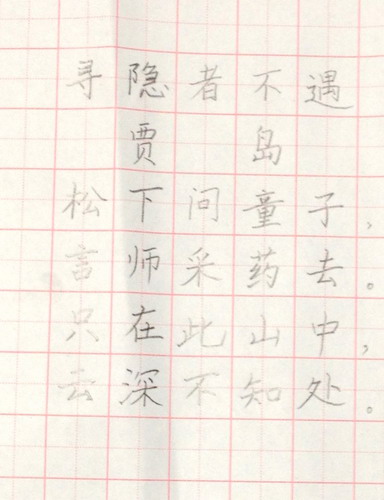 寻隐者不遇
贾岛
松下问童子，
言师采药去。
只在此山中，
去深不知处。